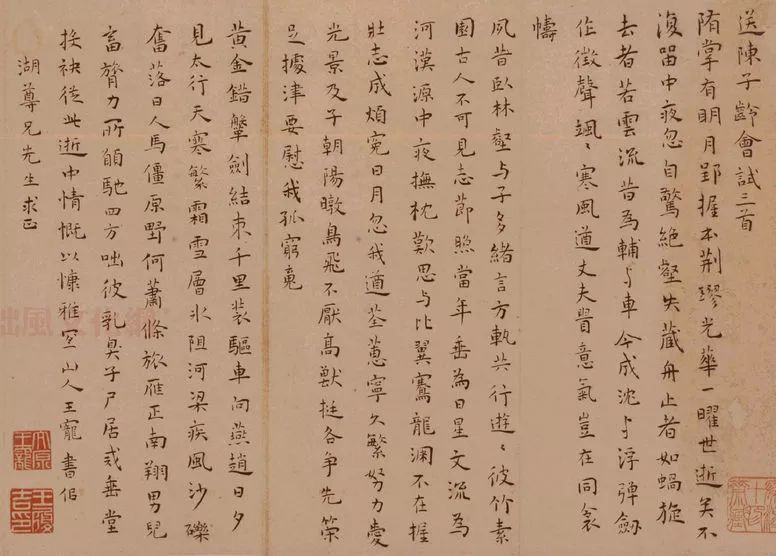 送陳子齡會試三首
隋掌有明月郢握本荆璆光華一曜世逝矣不
復留中夜忽自驚絕壑失藏舟止者如蝸旋
去者若雲流昔為輔与車今成沈与浮彈劔
作徵聲颯〻寒風遒丈夫貴意氣豈在同衾
幬
夙昔卧林壑与子多緒言方軌共行遊〻彼竹素
園古人不可見志節照當年垂為日星文流為
河漢源中夜撫枕歎思与比翼騫龍淵不在握
壯志成煩寃日月忽我遒荃蕙寧久繁努力愛
光景及子朝陽暾鳥飛不厭高獸挺各争先策
足據津要慰我孤窮䰟
黃金錯劍結束千里裝驅車向燕趙日夕
見太行天寒繁霜雪層冰阻河梁疾風沙礫
奮落日人馬僵原野何蕭條旅雁正南翔男兒
畜膂力所願馳四方咄彼乳臭子尸居或垂堂
袂從此逝中情慨以慷雅宜山人王寵書侣
湖尊兄先生求正
太原王寵
王履吉印